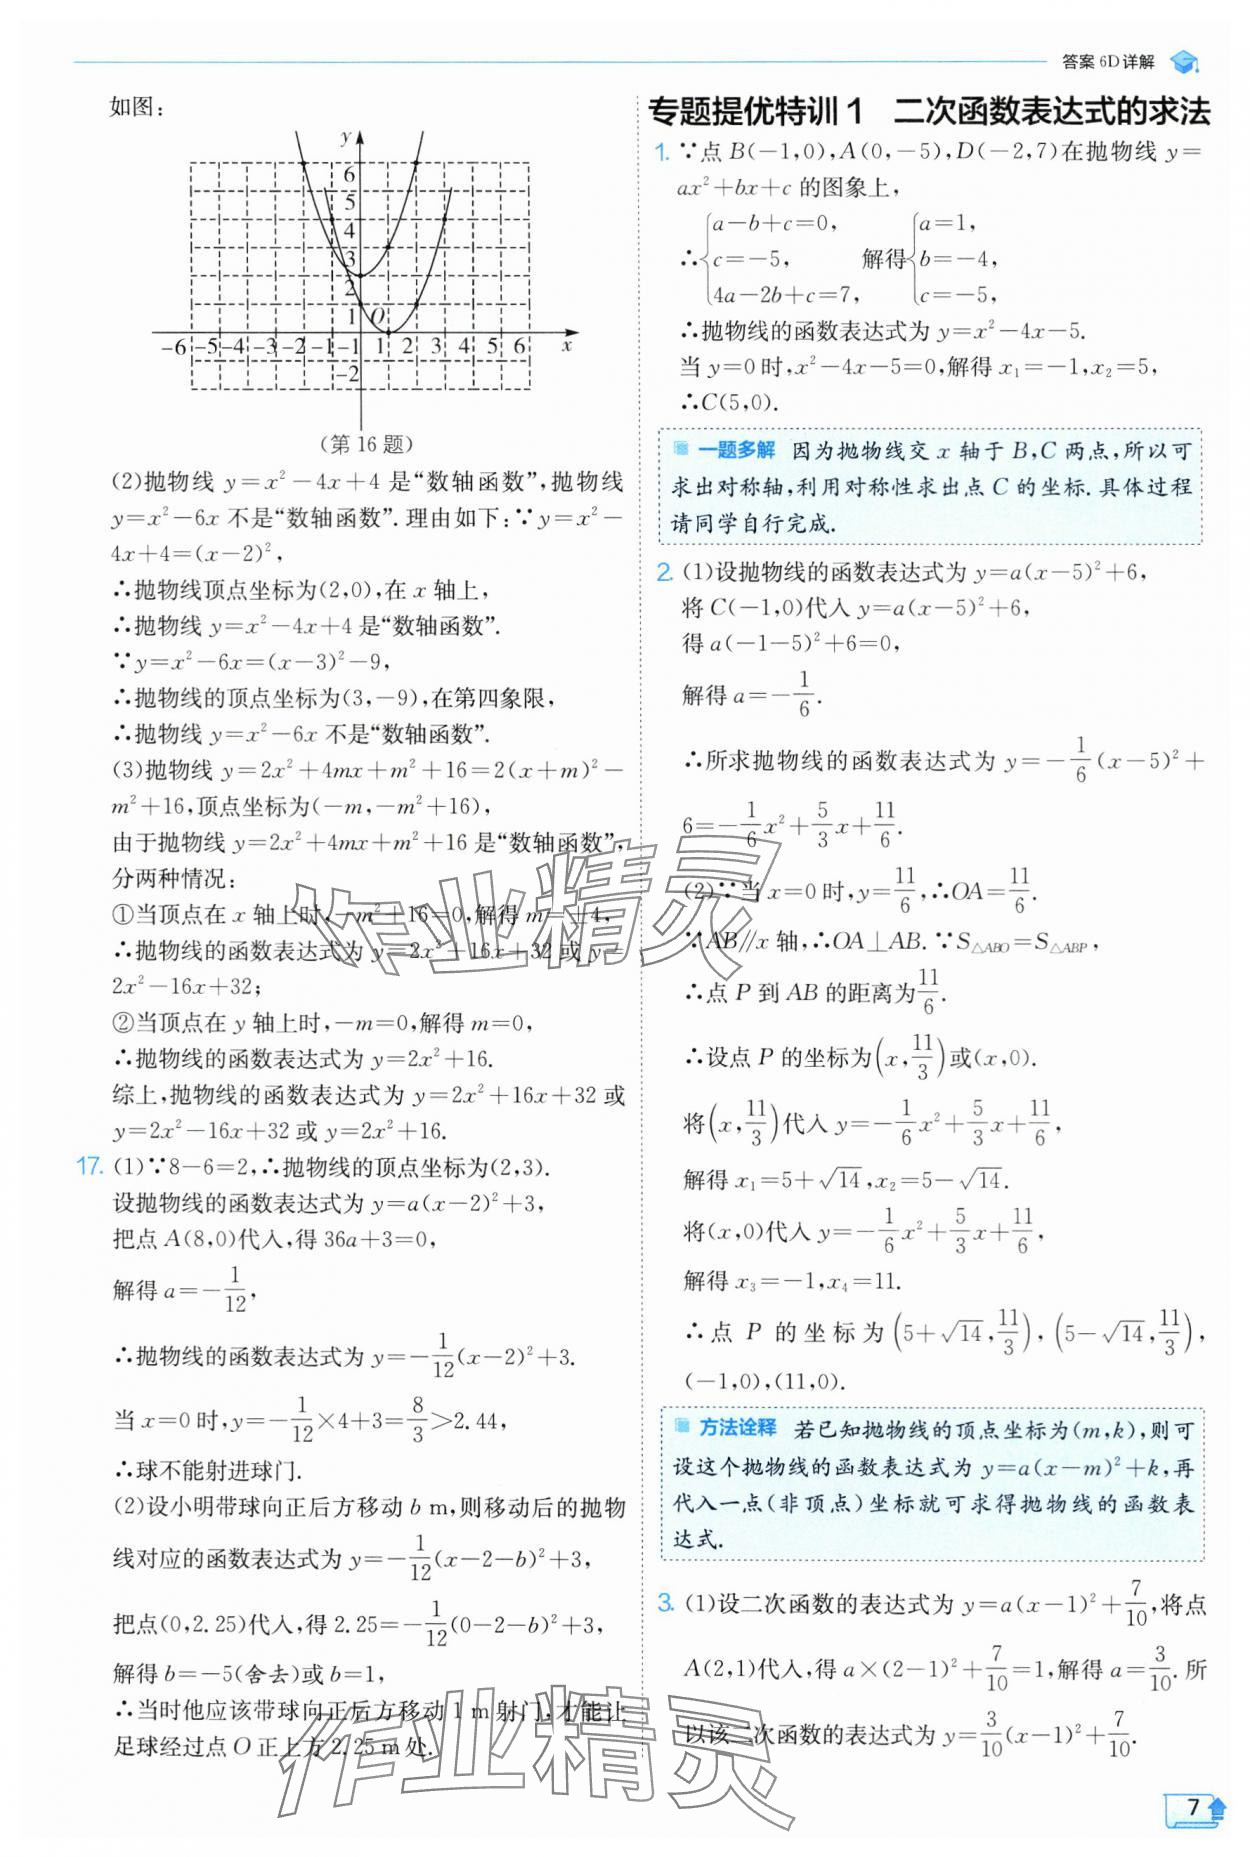 答案 6D 详解
如图：
y
6
5
4
3
2
1
O
-6 -5 -4 -3 -2 -1 -1 1 2 3 4 5 6 x
-2
(第 16 题)
(2)抛物线 y=x²-4x+4 是“数轴函数”,抛物线
y=x²-6x 不是“数轴函数”.理由如下:∵y=x²-
4x+4=(x-2)²,
∴抛物线顶点坐标为(2,0),在 x 轴上,
∴抛物线 y=x²-4x+4 是“数轴函数”.
∵y=x²-6x=(x-3)²-9,
∴抛物线的顶点坐标为(3,-9),在第四象限,
∴抛物线 y=x²-6x 不是“数轴函数”.
(3)抛物线 y=2x²+4mx+m²+16=2(x+m)²-
m²+16,顶点坐标为(-m,-m²+16),
由于抛物线 y=2x²+4mx+m²+16 是“数轴函数”,
分两种情况:
①当顶点在 x 轴上时,-m²+16=0,解得 m=±4,
∴抛物线的函数表达式为 y=2x²+16x+32 或 y=
2x²-16x+32;
②当顶点在 y 轴上时,-m=0,解得 m=0,
∴抛物线的函数表达式为 y=2x²+16.
综上,抛物线的函数表达式为 y=2x²+16x+32 或
y=2x²-16x+32 或 y=2x²+16.
17. (1)∵8-6=2,∴抛物线的顶点坐标为(2,3).
设抛物线的函数表达式为 y=a(x-2)²+3,
把点 A(8,0)代入,得 36a+3=0,
解得 a=-1/12,
∴抛物线的函数表达式为 y=-1/12(x-2)²+3.
当 x=0 时,y=-1/12×4+3=8/3>2.44,
∴球不能射进球门.
(2)设小明带球向正后方移动 b m,则移动后的抛物
线对应的函数表达式为 y=-1/12(x-2-b)²+3,
把点(0,2.25)代入,得 2.25=-1/12(0-2-b)²+3,
解得 b=-5(舍去)或 b=1,
∴当时他应该带球向正后方移动 1 m 射门,才能让
足球经过点 O 正上方 2.25 m 处.
专题提优特训 1 二次函数表达式的求法
1. ∵点 B(-1,0),A(0,-5),D(-2,7)在抛物线 y=
ax²+bx+c 的图象上,
∴{a-b+c=0, c=-5, 4a-2b+c=7, 解得{a=1, b=-4, c=-5,
∴抛物线的函数表达式为 y=x²-4x-5.
当 y=0 时,x²-4x-5=0,解得 x₁=-1,x₂=5,
∴C(5,0).
一题多解 因为抛物线交 x 轴于 B,C 两点,所以可
求出对称轴,利用对称性求出点 C 的坐标.具体过程
请同学自行完成.
2. (1)设抛物线的函数表达式为 y=a(x-5)²+6,
将 C(-1,0)代入 y=a(x-5)²+6,
得 a(-1-5)²+6=0,
解得 a=-1/6.
∴所求抛物线的函数表达式为 y=-1/6(x-5)²+
6=-1/6x²+5/3x+11/6.
(2)∵当 x=0 时,y=11/6,∴OA=11/6.
∵AB∥x 轴,∴OA⊥AB.∵S△ABO=S△ABP,
∴点 P 到 AB 的距离为11/6.
∴设点 P 的坐标为(x,11/3)或(x,0).
将(x,11/3)代入 y=-1/6x²+5/3x+11/6,
解得 x₁=5+√14,x₂=5-√14.
将(x,0)代入 y=-1/6x²+5/3x+11/6,
解得 x₃=-1,x₄=11.
∴点 P 的坐标为(5+√14,11/3),(5-√14,11/3),
(-1,0),(11,0).
方法诠释 若已知抛物线的顶点坐标为(m,k),则可
设这个抛物线的函数表达式为 y=a(x-m)²+k,再
代入一点(非顶点)坐标就可求得抛物线的函数表
达式.
3. (1)设二次函数的表达式为 y=a(x-1)²+7/10,将点
A(2,1)代入,得 a×(2-1)²+7/10=1,解得 a=3/10.所
以该二次函数的表达式为 y=3/10(x-1)²+7/10.
7
作业精灵
作业精灵